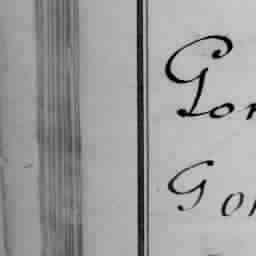 Gor
Gor